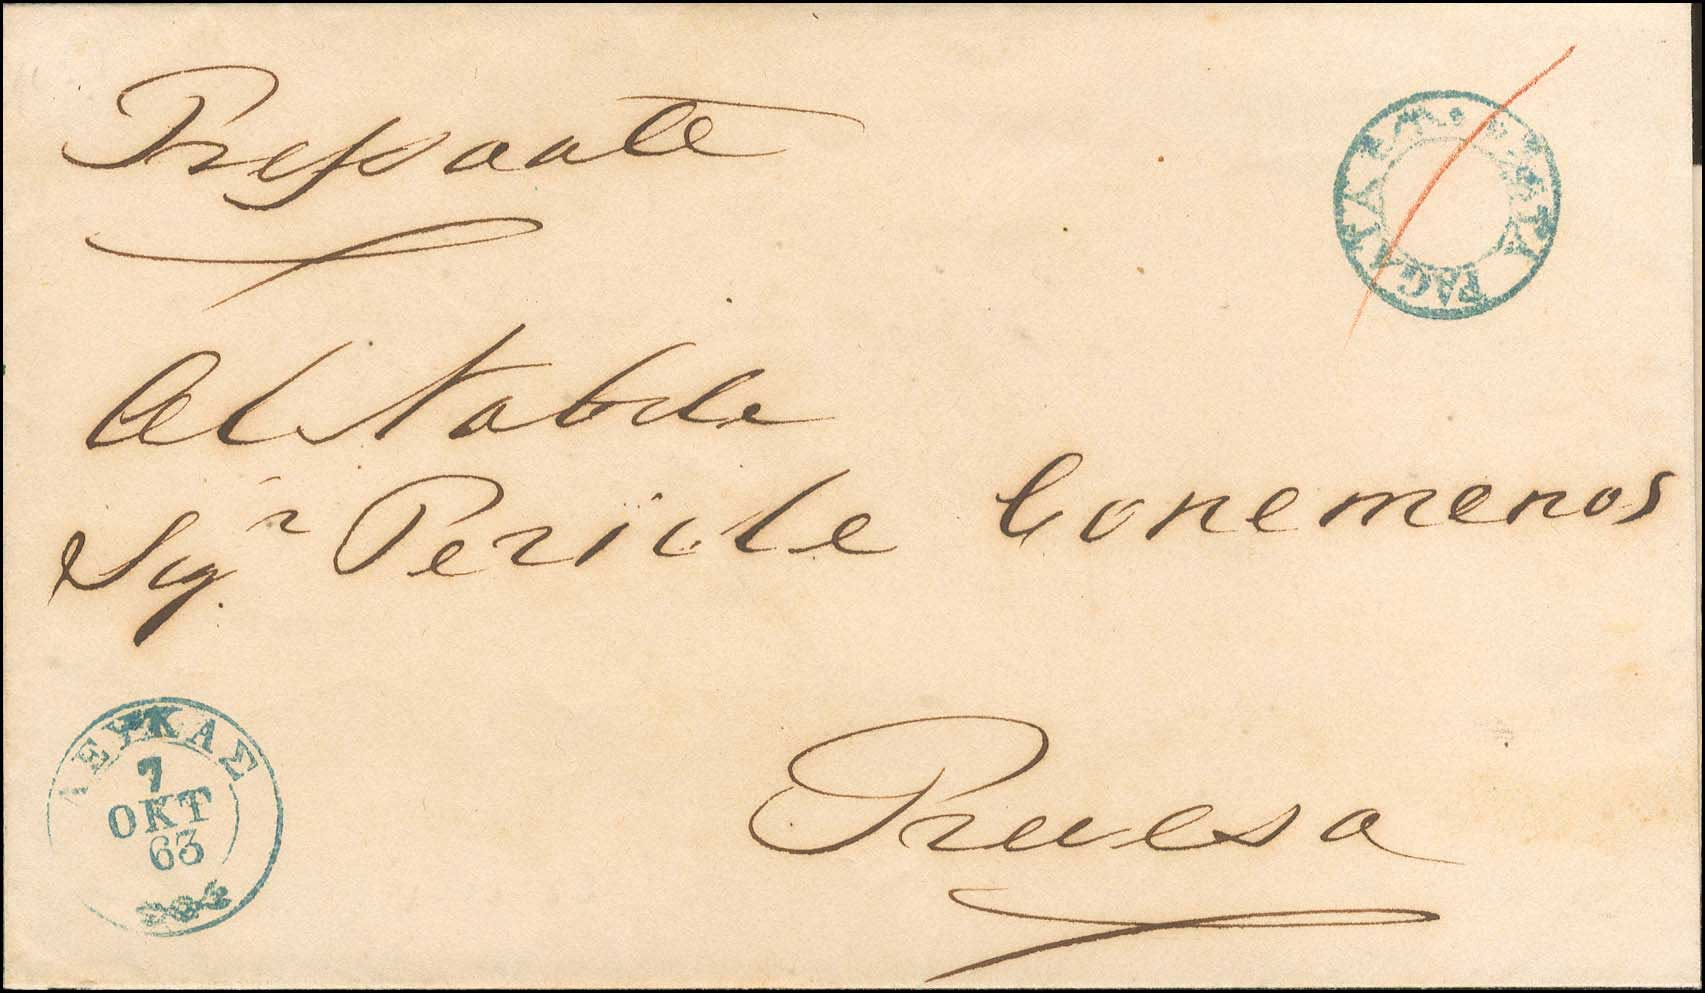 Pressante
Al Nobile
Sigr. Pericle Conemenos
Pruesa
ΛΕΥΚΑΣ
7
ΟΚΤ
63
PAGATA